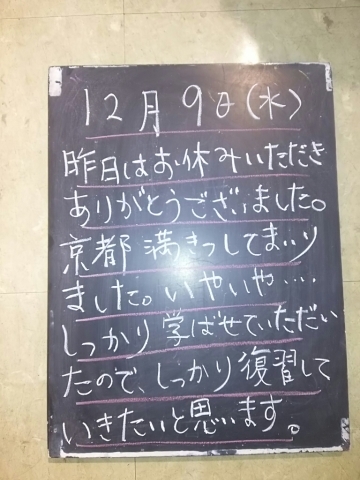 12月9日(水)
昨日はお休みいただき
ありがとうございました。
京都満きつしてまいり
ました。いやいや・・・・
しっかり学ばせていただい
たので、しっかり復習して
いきたいと思います。